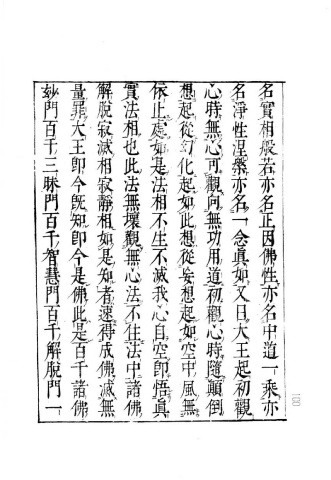 名實相般若亦名正因佛性亦名中道一乘亦
名淨性涅槃亦名一念眞如又曰大王起初觀
心時無心可觀向無功用道初觀心時隨顛倒
想起從幻化起如此想從妄想起如空中風無
依止處如是法相不生不滅我心自空卽悟眞
實法相也此法無壞觀無心法不住法中諸佛
解脫寂滅相寂靜相如是知者速得成佛滅無
量罪大王卽今旣知卽今是佛此是百千諸佛
妙門百千三昧門百千智慧門百千解脫門一
100